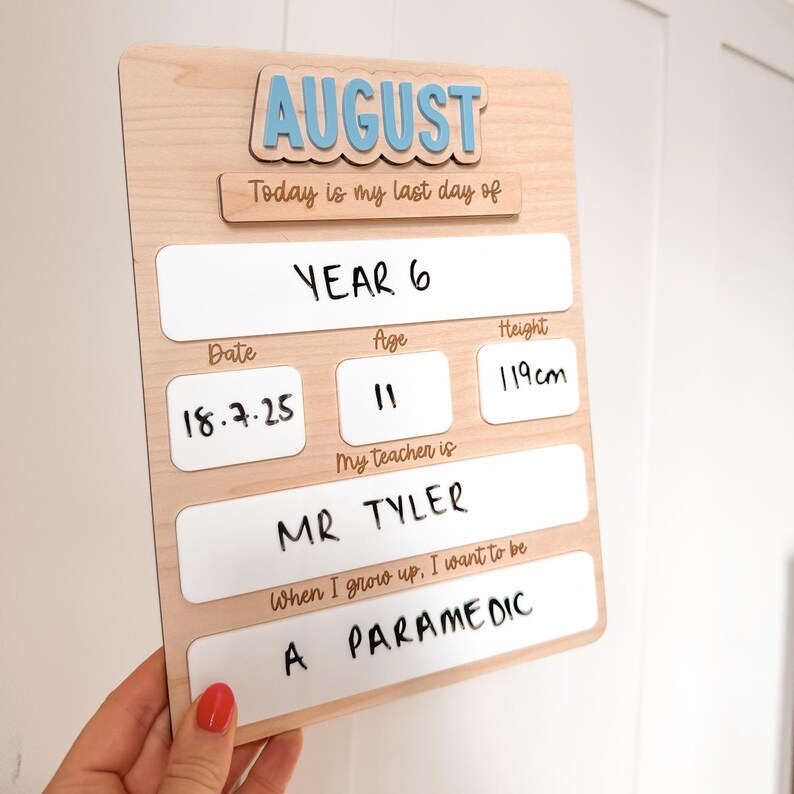 AUGUST
Today is my last day of
YEAR 6
Date Age Height
18.7.25 11 119cm
My teacher is
MR TYLER
When I grow up, I want to be
A PARAMEDIC